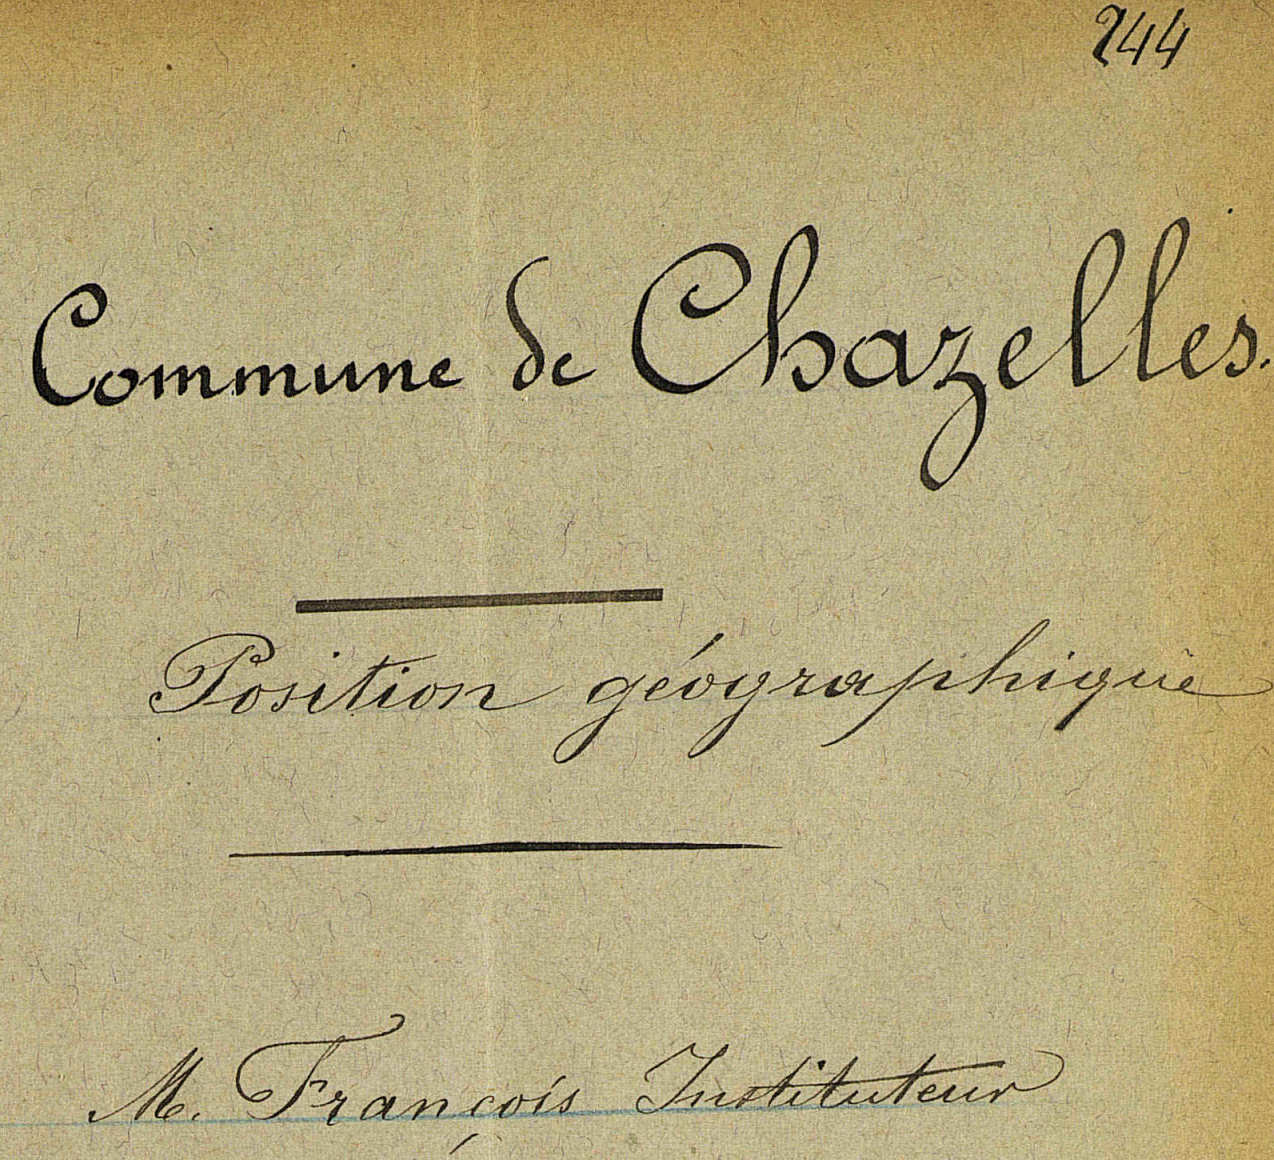 244
Commune de Chazelles.
Position géographique
M. François Instituteur